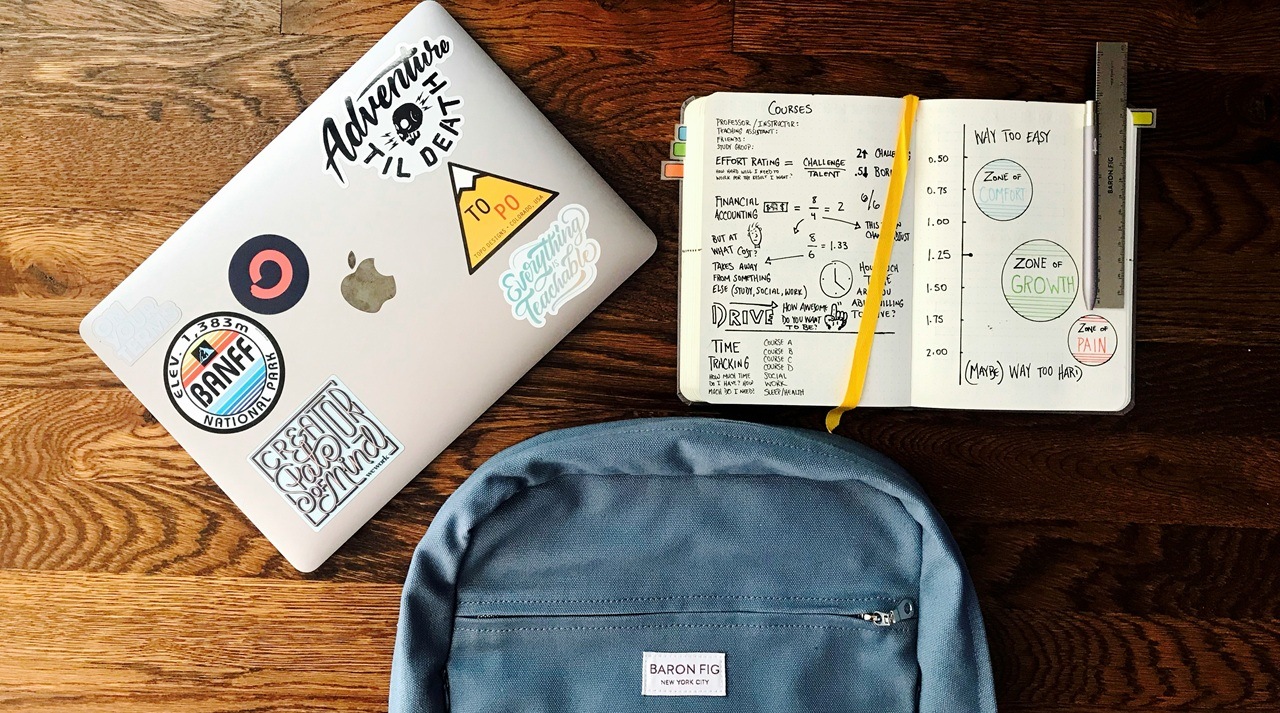 Adventure
TIL DEATH
TO PO
TOPO DESIGNS • COLORADO, USA
Everything
is
Teachable
ELEV. 1,383m
BANFF
NATIONAL PARK
CREATOR
State
OF Mind
wework
COURSES
PROFESSOR/INSTRUCTOR:
TEACHING ASSISTANT:
FRIENDS:
STUDY GROUP:
EFFORT RATING = CHALLENGE
TALENT
HOW HARD WILL I NEED TO
WORK FOR THE RESULT I WANT?
2↑
.5↓
FINANCIAL
ACCOUNTING = 8
4 = 2
6/6
BUT AT
WHAT COST?
8
6 = 1.33
TAKES AWAY
FROM SOMETHING
ELSE (STUDY, SOCIAL, WORK)
DRIVE
HOW AWESOME
DO YOU WANT
TO BE?
TIME
TRACKING
HOW MUCH TIME
DO I HAVE? HOW
MUCH DO I NEED?
COURSE A
COURSE B
COURSE C
COURSE D
SOCIAL
WORK
SLEEP/HEALTH
WAY TOO EASY
0.50
0.75
1.00
1.25
1.50
1.75
2.00
ZONE OF
COMFORT
ZONE OF
GROWTH
ZONE OF
PAIN
(MAYBE) WAY TOO HARD
BARON FIG
BARON FIG
NEW YORK CITY